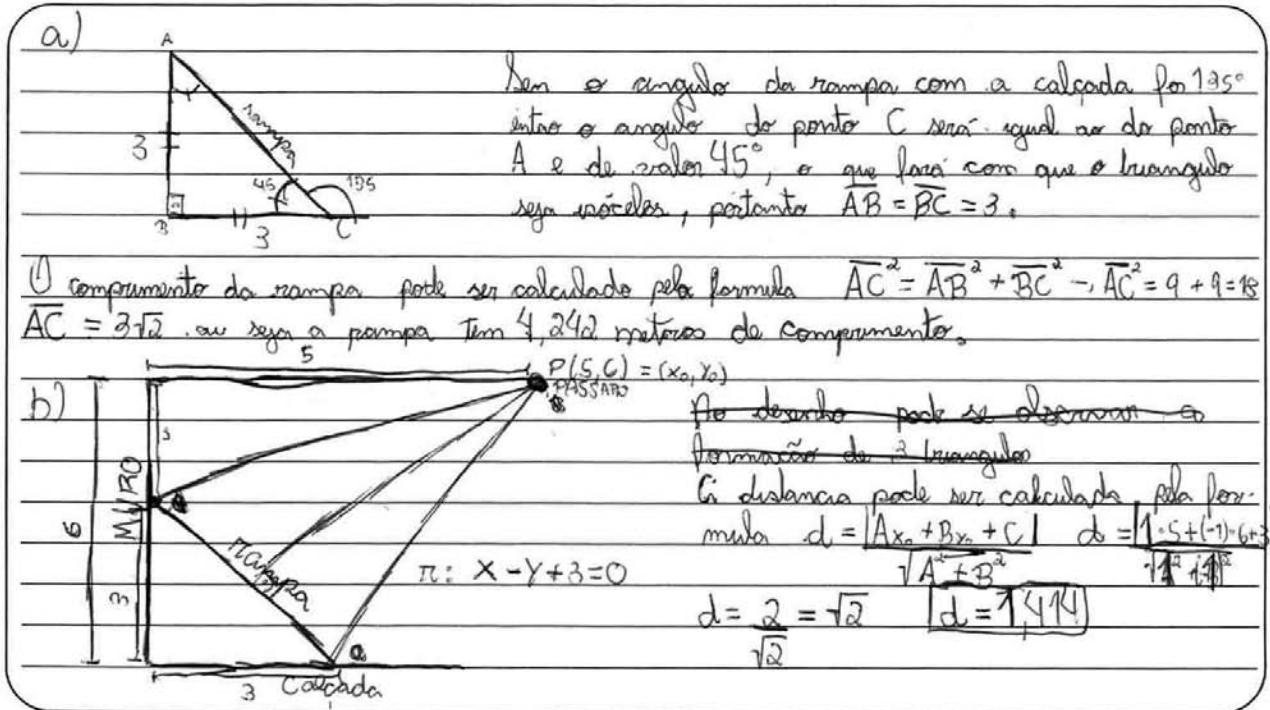 a)
A
rampa
3
45 135
B 3 C
Sen o angulo da rampa com a calçada for 135°
entao o angulo do ponto C será igual ao do ponto
A e de valor 45°, o que fará com que o triangulo
seja isóceles, portanto AB = BC = 3.
O comprimento da rampa pode ser calculado pela formula AC² = AB² + BC² → AC² = 9 + 9 = 18
AC = 3√2 ou seja a rampa tem 4,242 metros de comprimento.
b)
5
P(5,6) = (x₀, y₀)
PÁSSARO
3
MURO
6
3
rampa
r: X - Y + 3 = 0
3 Calçada
No desenho pode se observar a
formação de 2 triangulos
A distancia pode ser calculada pela for-
mula d = |Ax₀ + By₀ + C| / √A² + B² d = |1·5 + (-1)·6 + 3| / √1² + 1²
d = 2/√2 = √2 d = 1,414